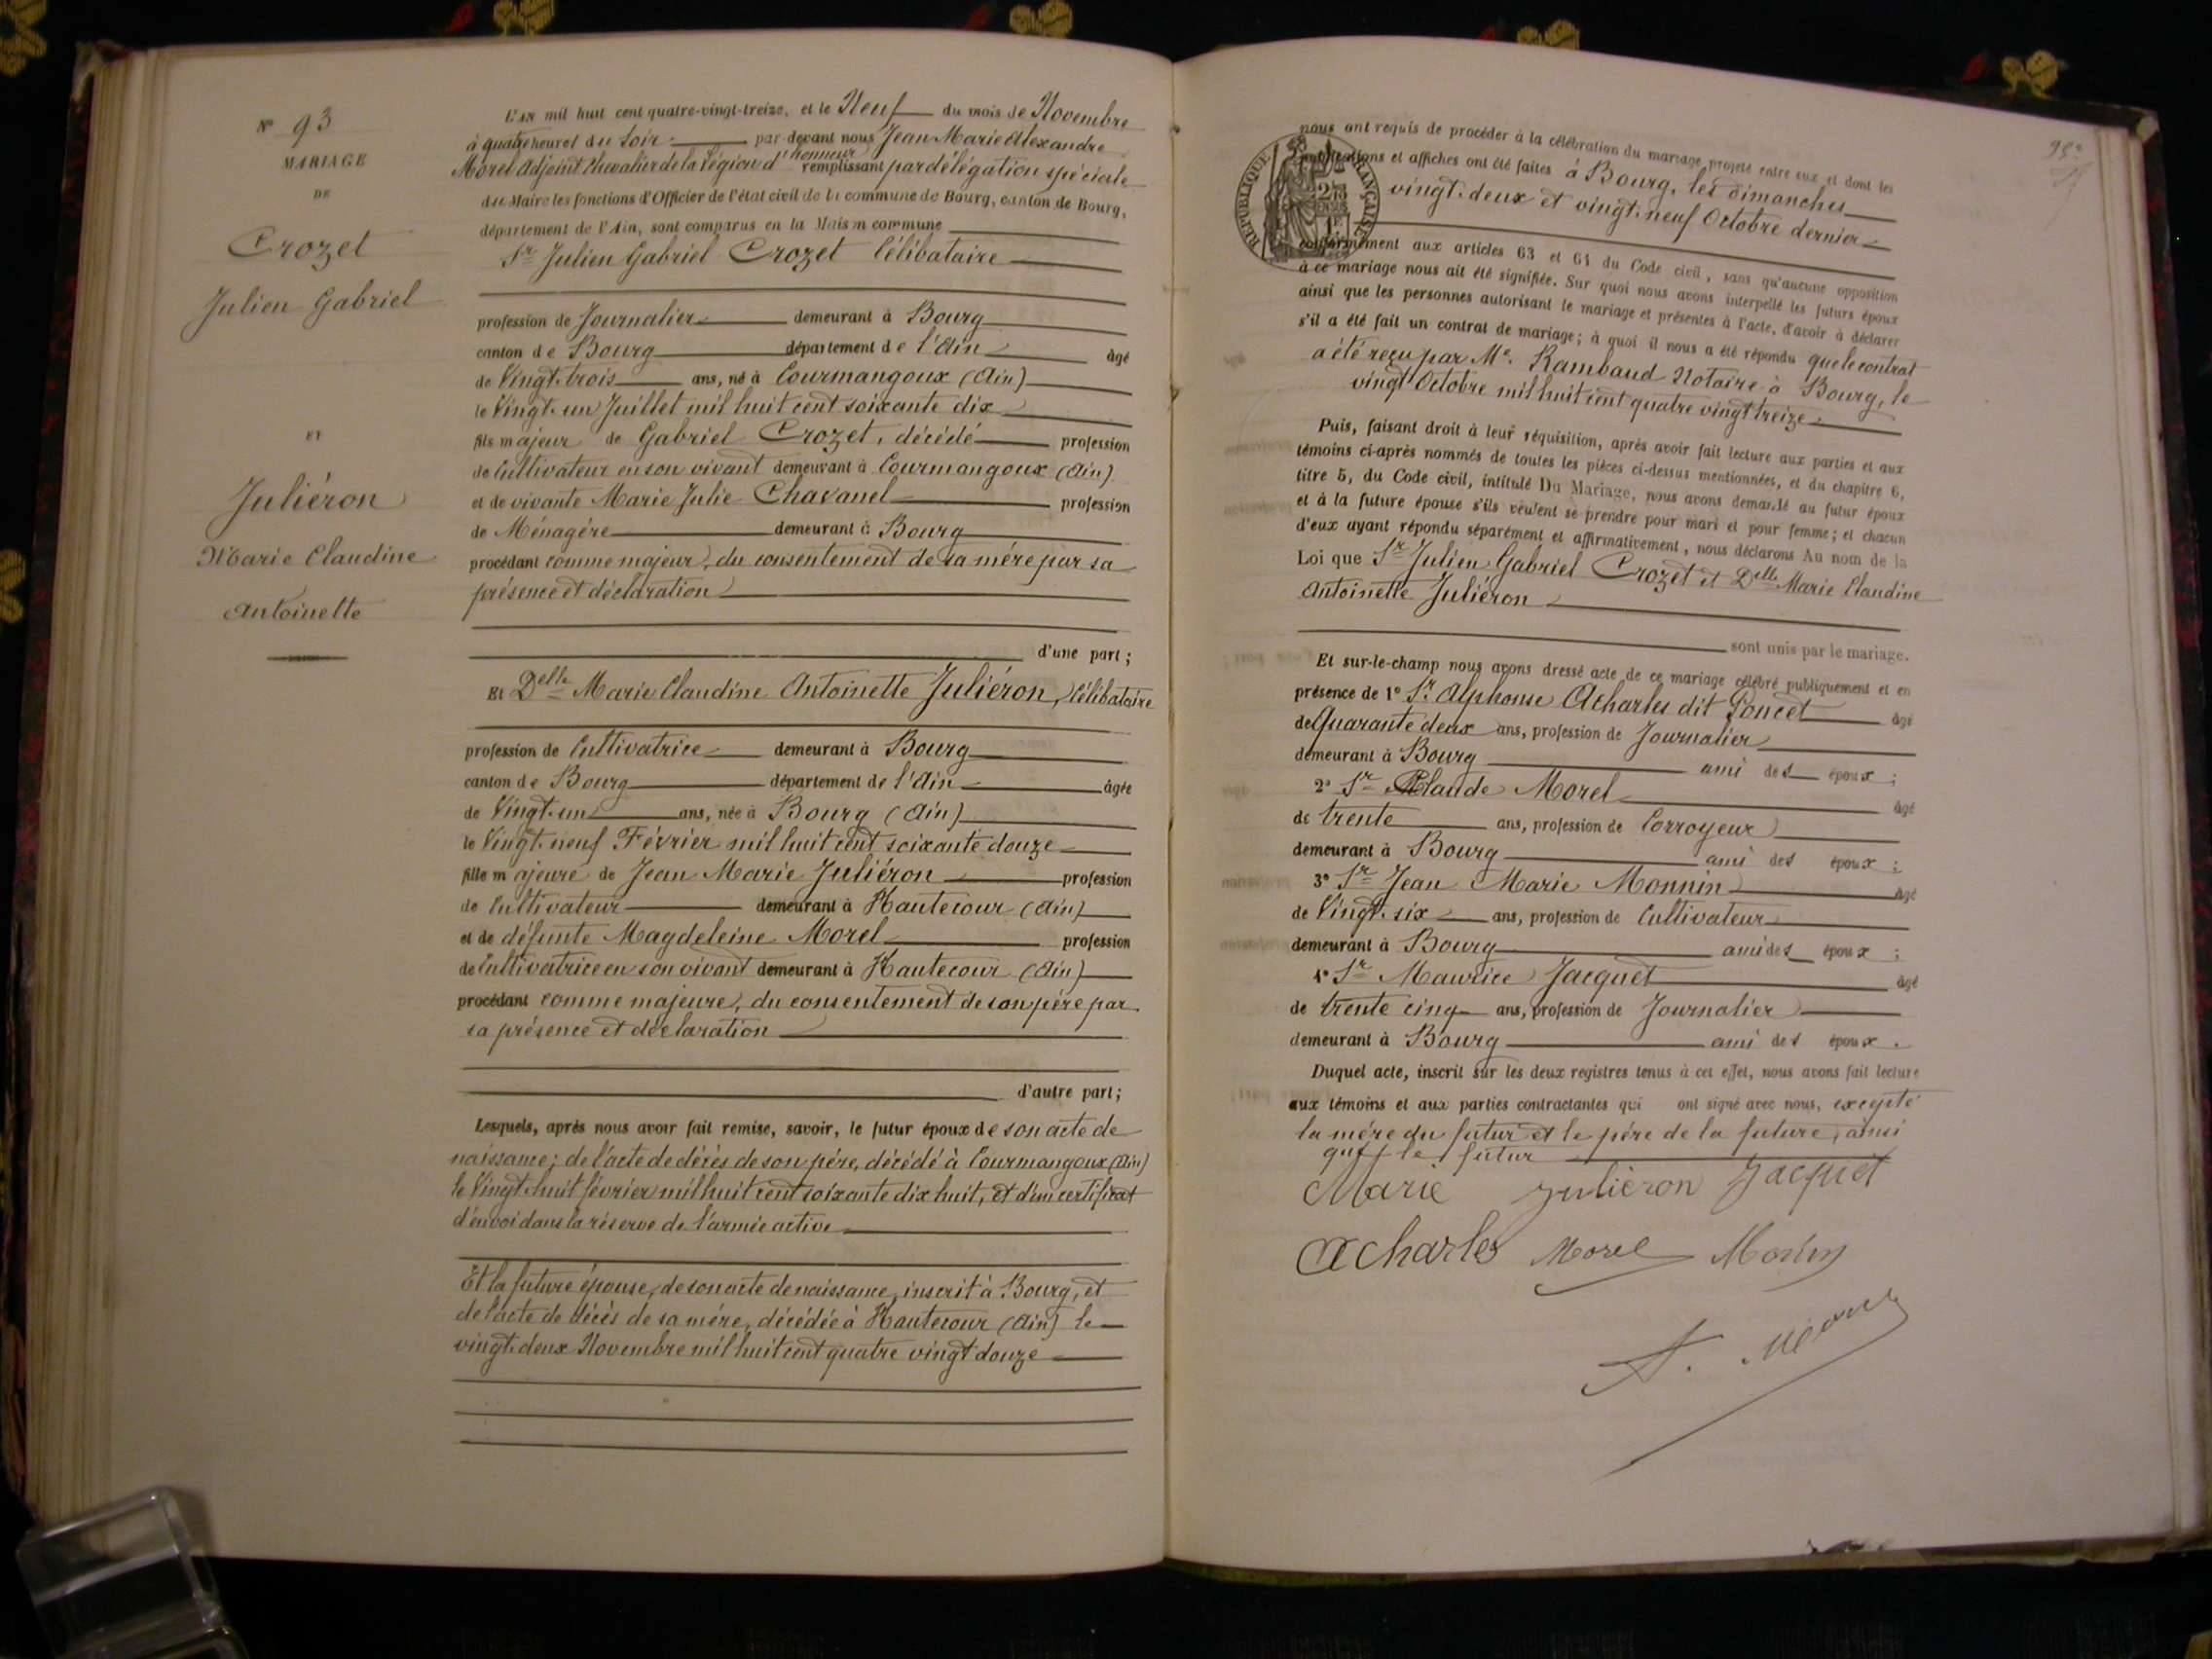 N° 93
MARIAGE
DE
Crozet
Julien Gabriel
ET
Juliéron
Marie Claudine
Antoinette
L'AN mil huit cent quatre-vingt-treize, et le Neuf du mois de Novembre
à quatre heures du Soir par devant nous Jean Marie Alexandre
Morel Adjoint Chevalier de la Légion d'honneur remplissant par délégation spéciale
du Maire les fonctions d'Officier de l'état civil de la commune de Bourg, canton de Bourg,
département de l'Ain, sont comparus en la Maison commune
Sr Julien Gabriel Crozet Célibataire
profession de Journalier demeurant à Bourg
canton de Bourg département de l'Ain âgé
de Vingt-trois ans, né à Courmangoux (Ain)
le Vingt-un Juillet mil huit cent soixante dix
fils majeur de Gabriel Crozet, décédé profession
de Cultivateur en son vivant demeurant à Courmangoux (Ain)
et de vivante Marie Julie Chavanel profession
de Ménagère demeurant à Bourg
procédant comme majeur, du consentement de sa mère par sa
présence et déclaration
d'une part;
Et Delle Marie Claudine Antoinette Juliéron, Célibataire
profession de Cultivatrice demeurant à Bourg
canton de Bourg département de l'Ain âgée
de Vingt-un ans, née à Bourg (Ain)
le Vingt-neuf Février mil huit cent soixante douze
fille majeure de Jean Marie Juliéron profession
de Cultivateur demeurant à Hautecour (Ain)
et de défunte Magdeleine Morel profession
de Cultivatrice en son vivant demeurant à Hautecour (Ain)
procédant comme majeure, du consentement de son père par
sa présence et déclaration
d'autre part;
Lesquels, après nous avoir fait remise, savoir, le futur époux de son acte de
naissance; de l'acte de décès de son père, décédé à Courmangoux (Ain)
le Vingt-huit février mil huit cent soixante dix huit, et d'un certificat
d'envoi dans la réserve de l'armée active
Et la future épouse, de son acte de naissance, inscrit à Bourg, et
de l'acte de décès de sa mère, décédée à Hautecour (Ain) le
vingt-deux Novembre mil huit cent quatre vingt douze
RÉPUBLIQUE FRANÇAISE
nous ont requis de procéder à la célébration du mariage projeté entre eux et dont les
publications et affiches ont été faites à Bourg, les dimanches
vingt-deux et vingt-neuf Octobre dernier
conformément aux articles 63 et 64 du Code civil, sans qu'aucune opposition
à ce mariage nous ait été signifiée. Sur quoi nous avons interpellé les futurs époux
ainsi que les personnes autorisant le mariage et présentes à l'acte, d'avoir à déclarer
s'il a été fait un contrat de mariage; à quoi il nous a été répondu que le contrat
a été reçu par Me. Rambaud Notaire à Bourg, le
vingt Octobre mil huit cent quatre vingt treize
Puis, faisant droit à leur réquisition, après avoir fait lecture aux parties et aux
témoins ci-après nommés de toutes les pièces ci-dessus mentionnées, et du chapitre 6,
titre 5, du Code civil, intitulé Du Mariage, nous avons demandé au futur époux
et à la future épouse s'ils veulent se prendre pour mari et pour femme; et chacun
d'eux ayant répondu séparément et affirmativement, nous déclarons Au nom de la
Loi que Sr Julien Gabriel Crozet et Delle Marie Claudine
Antoinette Juliéron
sont unis par le mariage.
Et sur-le-champ nous avons dressé acte de ce mariage célébré publiquement et en
présence de 1° Sr Alphonse Acharles dit Poncet âgé
de Quarante deux ans, profession de Journalier
demeurant à Bourg ami des époux;
2° Sr Claude Morel âgé
de trente ans, profession de Corroyeur
demeurant à Bourg ami des époux;
3° Sr Jean Marie Monnin âgé
de Vingt-six ans, profession de Cultivateur
demeurant à Bourg ami des époux;
4° Sr Maurice Jacquet âgé
de trente cinq ans, profession de Journalier
demeurant à Bourg ami des époux.
Duquel acte, inscrit sur les deux registres tenus à cet effet, nous avons fait lecture
aux témoins et aux parties contractantes qui ont signé avec nous, excepté
la mère du futur et le père de la future, ainsi
que le futur
Marie Julieron Jacquet
Acharles Morel Monin